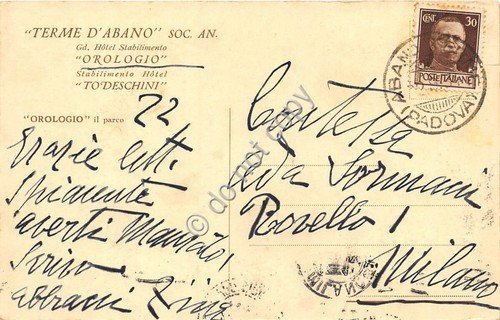 "TERME D'ABANO" SOC. AN.
Gd. Hôtel Stabilimento
"OROLOGIO"
Stabilimento Hôtel
"TODESCHINI"
"OROLOGIO" il parco
22
Grazie lett.
Spiacente
averti mancato!
Scrivo
abbracci
Contessa
Lida Sormani
Rovello 1
Milano
CENT. 30
POSTE ITALIANE
ABANO
(PADOVA)
do not copy